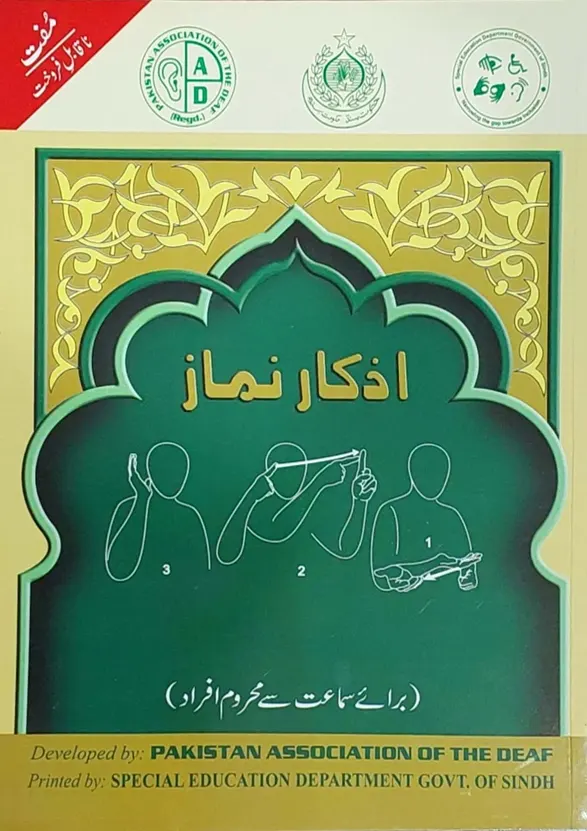 مُفت
ناقابلِ فروخت
PAKISTAN ASSOCIATION OF THE DEAF
A
D
(Regd.)
Special Education Department Government of Sindh
Narrowing the gap towards inclusion
اذکار نماز
3
2
1
(برائے سماعت سے محروم افراد)
Developed by: PAKISTAN ASSOCIATION OF THE DEAF
Printed by: SPECIAL EDUCATION DEPARTMENT GOVT. OF SINDH